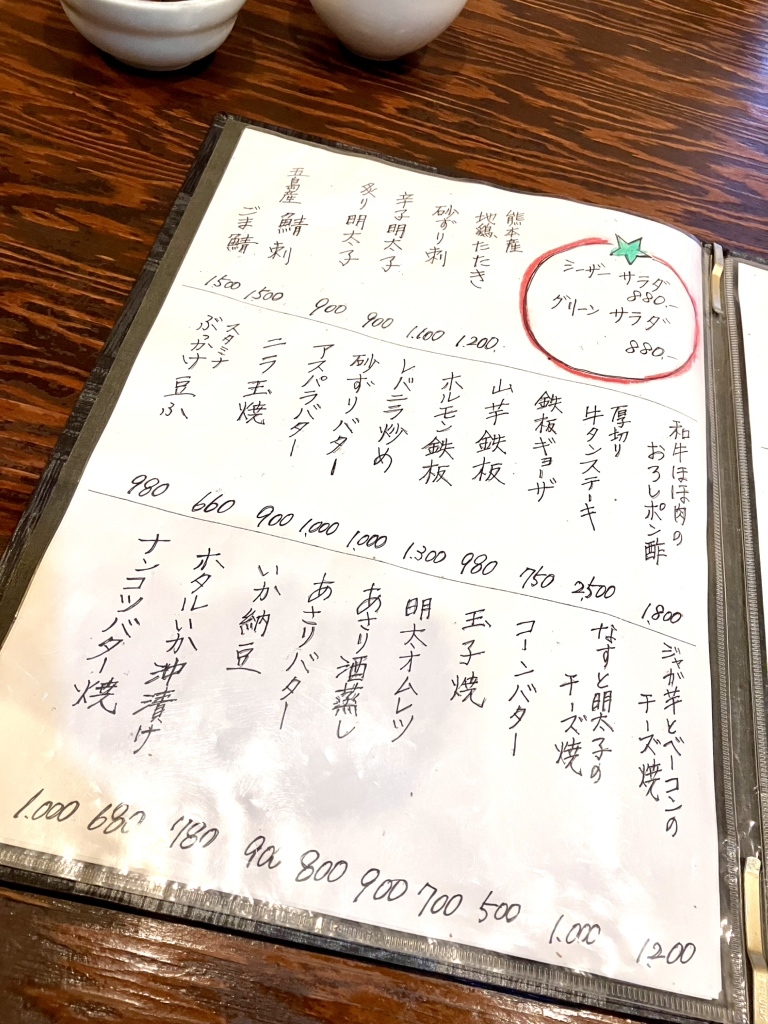 シーザー サラダ
880.-
グリーン サラダ
880.-
熊本産
地鶏たたき
1.200.
砂ずり刺
1.100
辛子明太子
900
炙り明太子
900
五島産
鯖刺
1500
ごま鯖
1500
和牛ほほ肉の
おろしポン酢
1,800
厚切り
牛タンステーキ
2,500
鉄板ギョーザ
750
山芋鉄板
980
ホルモン鉄板
1.300
レバニラ炒め
1,000
砂ずりバター
1,000
アスパラバター
900
ニラ玉焼
660
スタミナ
ぶっかけ豆ふ
980
ジャガ芋とベーコンの
チーズ焼
1200
なすと明太子の
チーズ焼
1.000
コーンバター
500
玉子焼
700
明太オムレツ
900
あさり酒蒸し
800
あさりバター
900
いか納豆
780
ホタルいか沖漬け
680
ナンコツバター焼
1.000